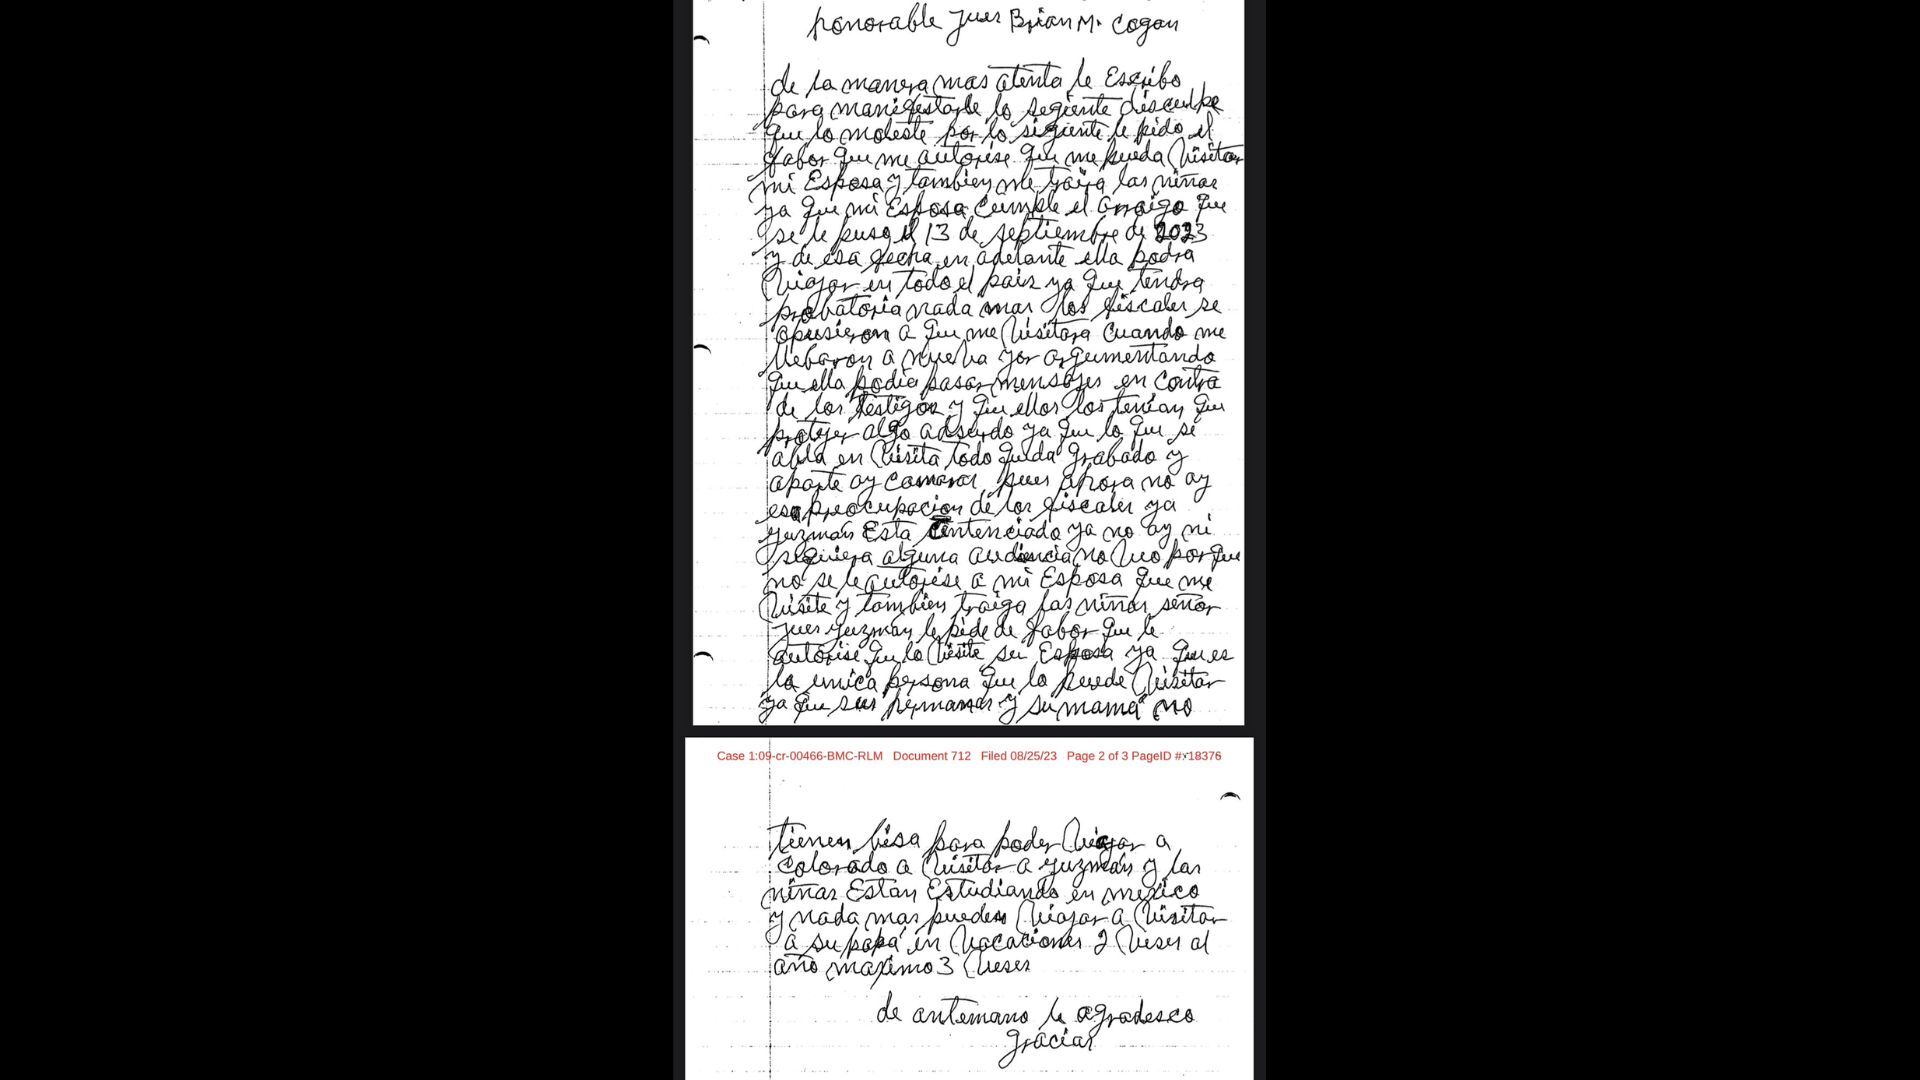 honorable jues Brian M. Cogan
de la manera mas atenta le Escribo
para manifestarle lo segiente disculpe
que lo moleste por lo sigiente le pido el
fabor que me autorise que me pueda Visitar
mi Esposa y tambien me traiga las niñas
ya que mi Esposa cumple el arraigo que
se le puso el 13 de septiembre de 2023
y de esa fecha en adelante ella podra
Viajar en todo el pais ya que tendra
probatoria nada mas los fiscales se
opusieron a que me Visitara cuando me
llebaron a nueba yor argumentando
que ella podia pasar mensajes en contra
de los testigos y que ellos los tenian que
protejer algo adsurdo ya que lo que se
abla en Visita todo queda grabado y
aparte ay camaras pues ahora no ay
esa preocupacion de los fiscales ya
guzmán Esta sentenciado ya no ay ni
siquiera alguna audiencia no Veo por que
no se le autorise a mi Esposa que me
Visite y tambien traiga las niñas señor
jues guzman le pide de fabor que le
autorise que lo Visite su Esposa ya que es
la unica persona que lo puede Visitar
ya que sus hermanas y su mamá no
Case 1:09-cr-00466-BMC-RLM Document 712 Filed 08/25/23 Page 2 of 3 PageID #: 18376
tienen bisa para poder Viajar a
Colorado a Visitar a guzmán y las
niñas Estan Estudiando en mexico
y nada mas pueden Viajar a Visitar
a su papá en Vacaciones 2 Veses al
año maximo 3 Veses
de antemano le agradesco
gracias